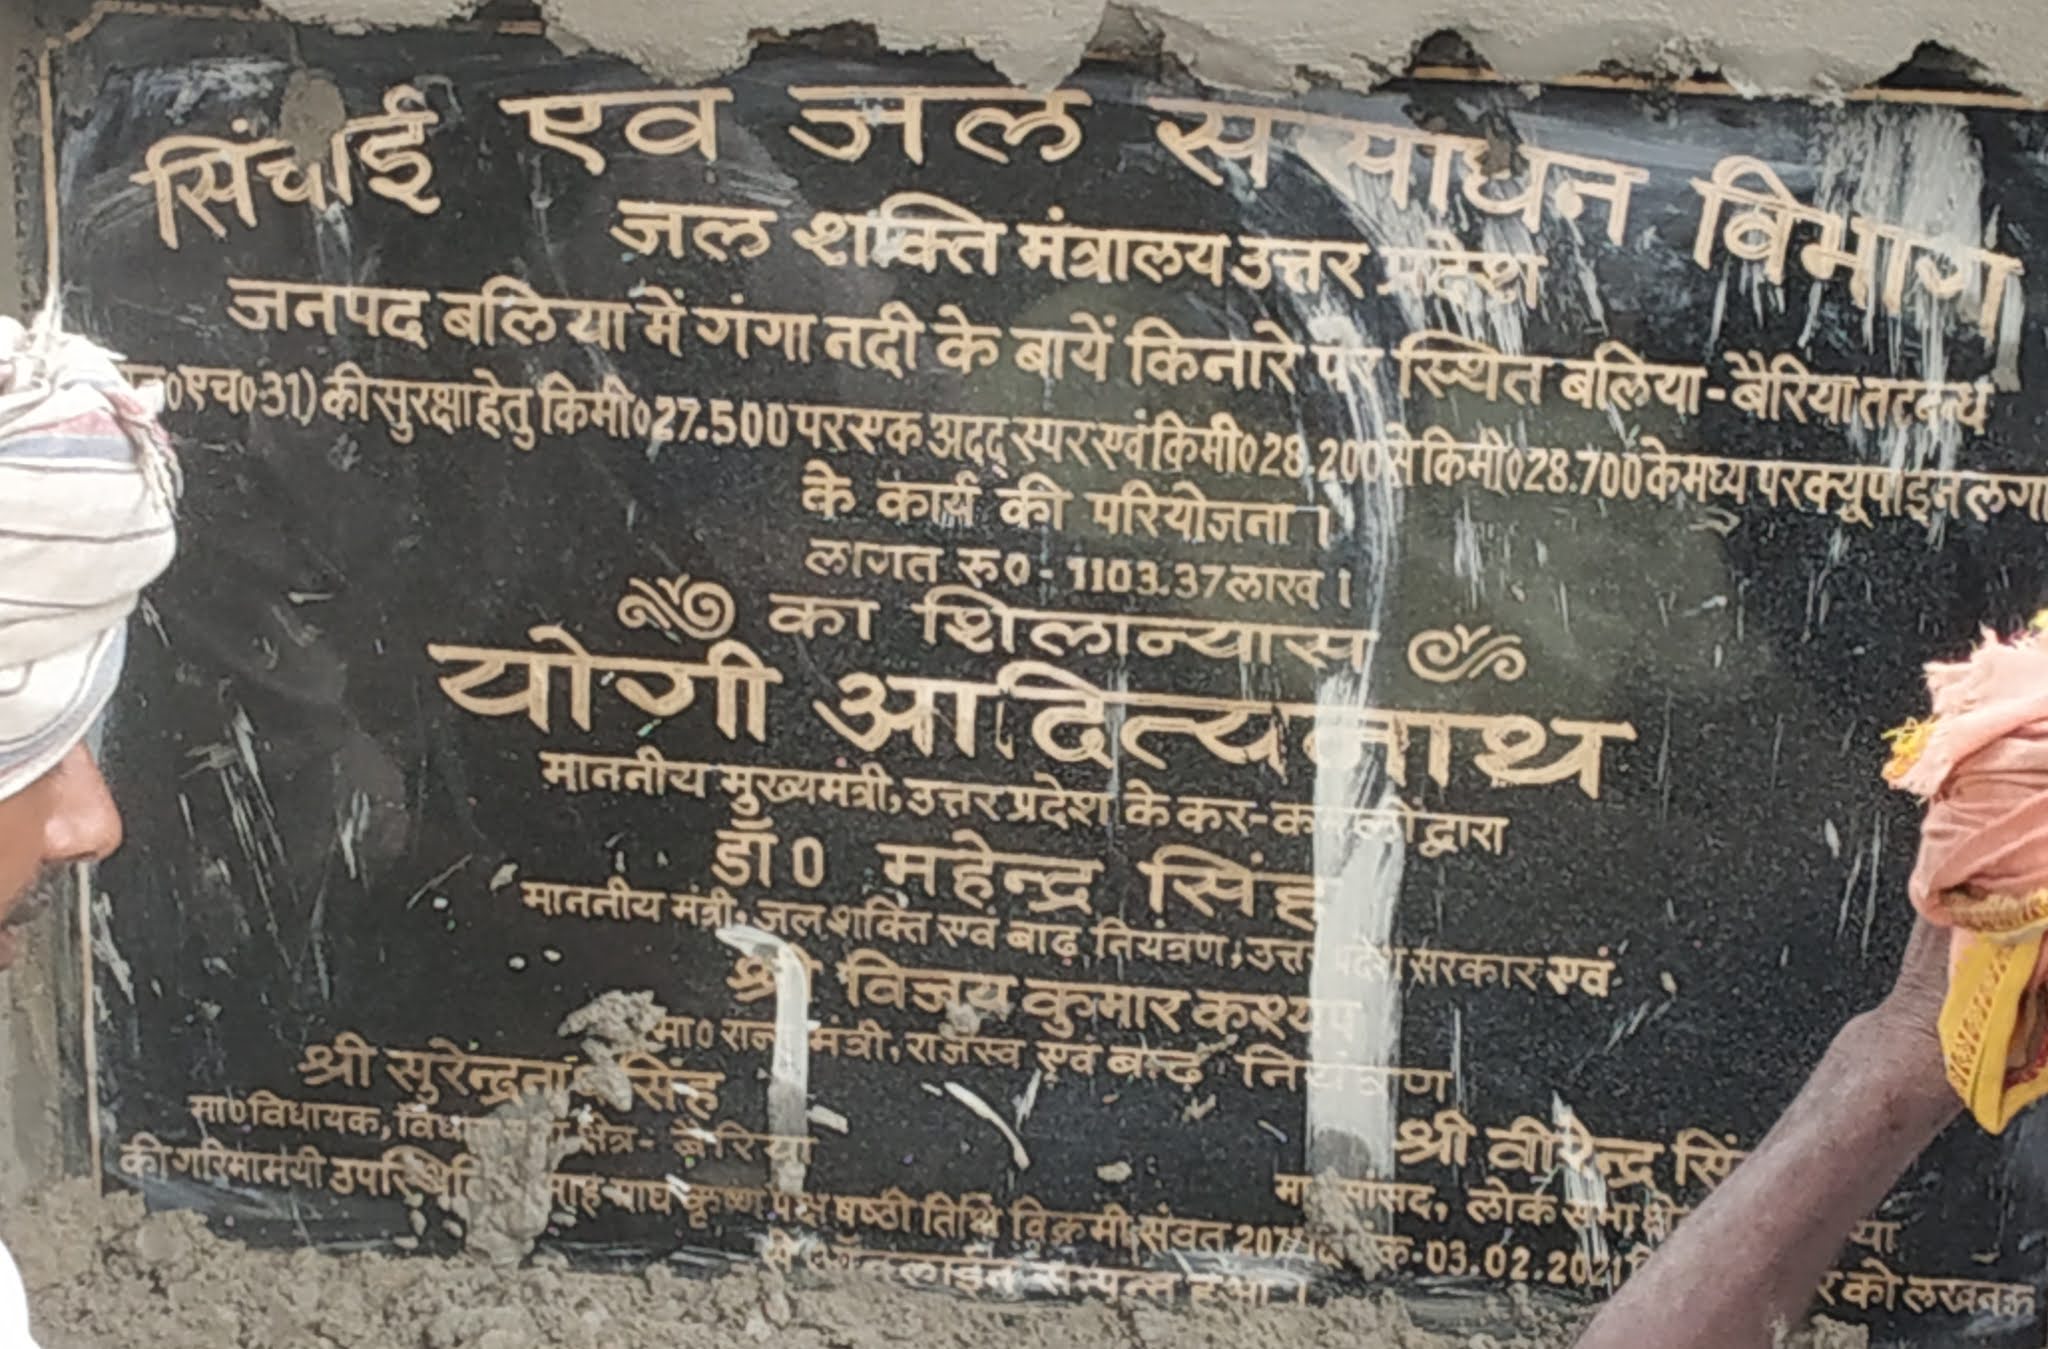 सिंचाई एवं जल संसाधन विभाग
जल शक्ति मंत्रालय उत्तर प्रदेश
जनपद बलिया में गंगा नदी के बायें किनारे पर स्थित बलिया-बैरिया तटबन्ध
०एच०31) की सुरक्षा हेतु किमी० 27.500 पर एक अदद स्पर एवं किमी० 28.200 से किमी० 28.700 के मध्य परक्यूपाइन लगा
के कार्य की परियोजना ।
लागत रु० - 1103.37 लाख ।
का शिलान्यास
योगी आदित्यनाथ
माननीय मुख्यमंत्री, उत्तर प्रदेश के कर-कमलों द्वारा
डॉ० महेन्द्र सिंह
माननीय मंत्री, जल शक्ति एवं बाढ़ नियंत्रण, उत्तर प्रदेश सरकार एवं
श्री विजय कुमार कश्यप
मा० राज्य मंत्री, राजस्व एवं बाढ़ नियंत्रण
श्री सुरेन्द्रनाथ सिंह
मा० विधायक, विधान सभा क्षेत्र- बैरिया
श्री वीरेन्द्र सिं
सांसद, लोक सभा क्षे या
की गरिमामयी उपस्थिति माह माघ कृष्ण पक्ष षष्ठी तिथि विक्रमी संवत -03.02.2021 को लखनऊ
से ऑनलाईन सम्पन्न हुआ ।